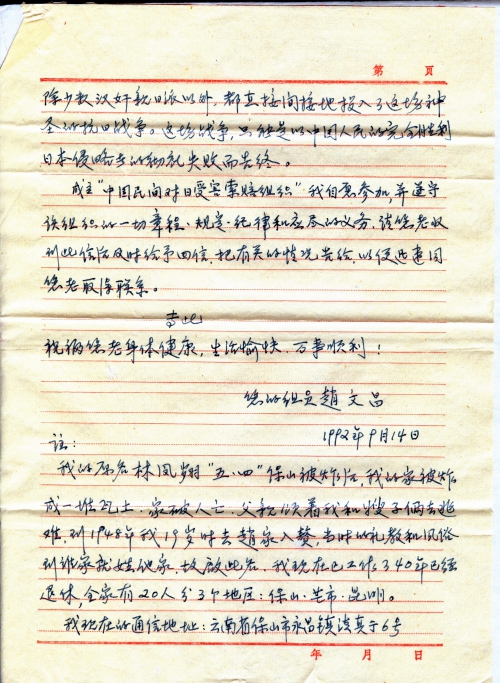 第 页
除少数汉奸亲日派以外，都直接间接地投入了这场神
圣的抗日战争。这场战争，只能是以中国人民的完全胜利
日本侵略者的彻底失败而告终。
成立“中国民间对日受害索赔组织”我自愿参加，并遵守
该组织的一切章程、规定、纪律和应尽的义务，请您老收
到此信后及时给予回信，把有关的情况告给，以便迅速同
您老取得联系。
专此
祝福您老身体健康，生活愉快，万事顺利！
您的组员趙文昌
1992年9月14日
注：
我的原名林凤翔“五·四”保山被炸后，我的家被炸
成一堆瓦土，家破人亡，父親領着我和嫂子俩去逃
难，到1948年我19岁时去趙家入赘，当时的礼教和风俗
到谁家就姓他家，故改此名，我现在已工作了40年已经
退休，全家有20人分3个地区：保山、芒市、昆明。
我现在的通信地址：云南省保山市永昌镇 6号
年 月 日